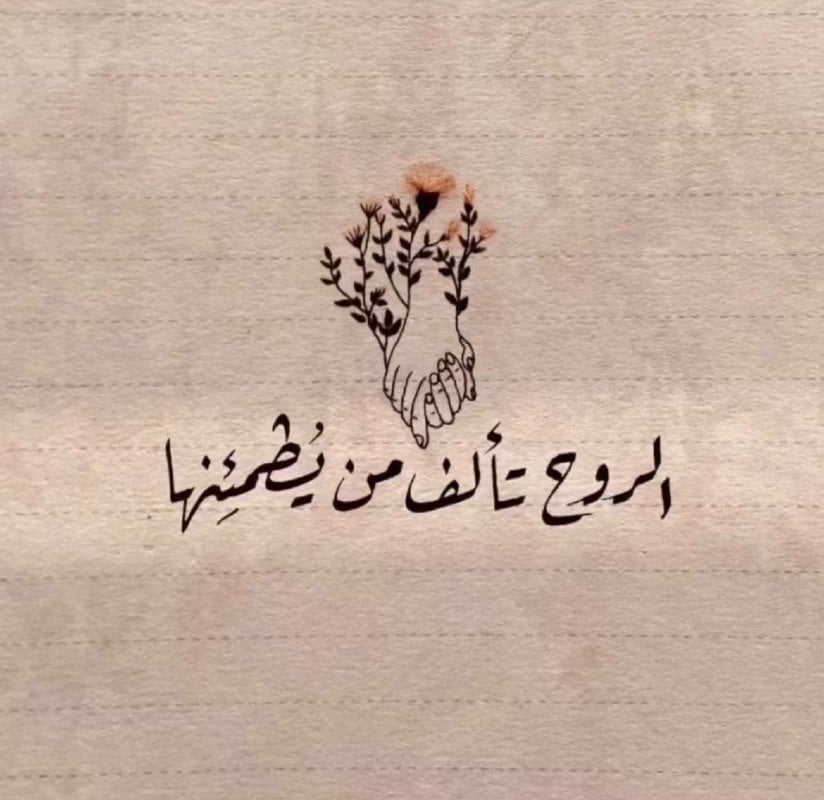 الروح تألف من يُطمئِنها